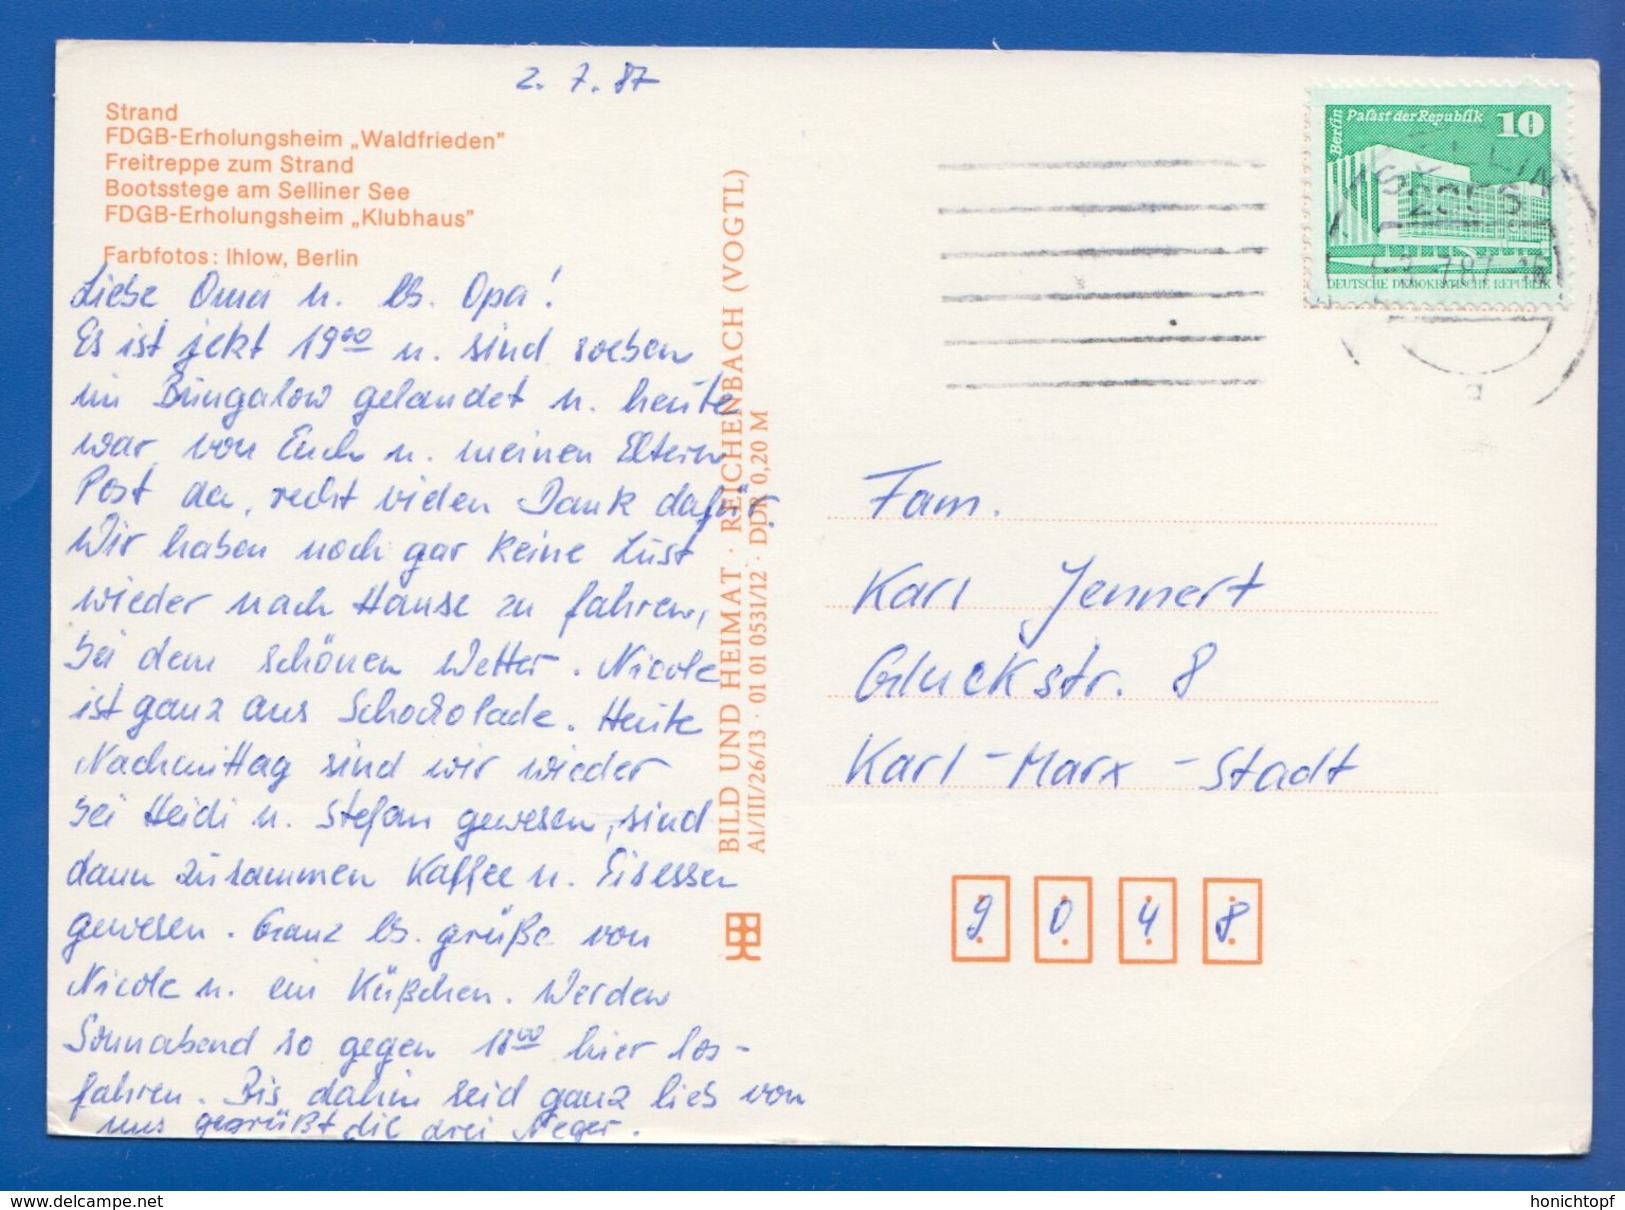 2. 7. 87
Strand
FDGB-Erholungsheim „Waldfrieden"
Freitreppe zum Strand
Bootsstege am Selliner See
FDGB-Erholungsheim „Klubhaus"
Farbfotos: Ihlow, Berlin
Liebe Oma u. lb. Opa!
Es ist jetzt 19⁰⁰ u. sind soeben
im Bungalow gelandet u. heute
war von Euch u. meinen Eltern
Post da, recht vielen Dank dafür.
Wir haben noch gar keine Lust
wieder nach Hause zu fahren,
bei dem schönen Wetter. Nicole
ist ganz aus Schokolade. Heute
Nachmittag sind wir wieder
bei Heidi u. Stefan gewesen, sind
dann zusammen Kaffee u. Eisessen
gewesen. Ganz lb. grüße von
Nicole u. ein Küßchen. Werden
Sonnabend so gegen 18⁰⁰ hier los-
fahren. Bis dahin seid ganz lieb von
uns gegrüßt die drei Neger.
BILD UND HEIMAT · REICHENBACH (VOGTL)
A1/III/26/13 · 01 01 0531/12 · DDR 0,20 M
Berlin Palast der Republik 10
DEUTSCHE DEMOKRATISCHE REPUBLIK
SELLIN
2356
Fam.
Karl Jennert
Gluckstr. 8
Karl-Marx-Stadt
9 0 4 8
www.delcampe.net
honichtopf